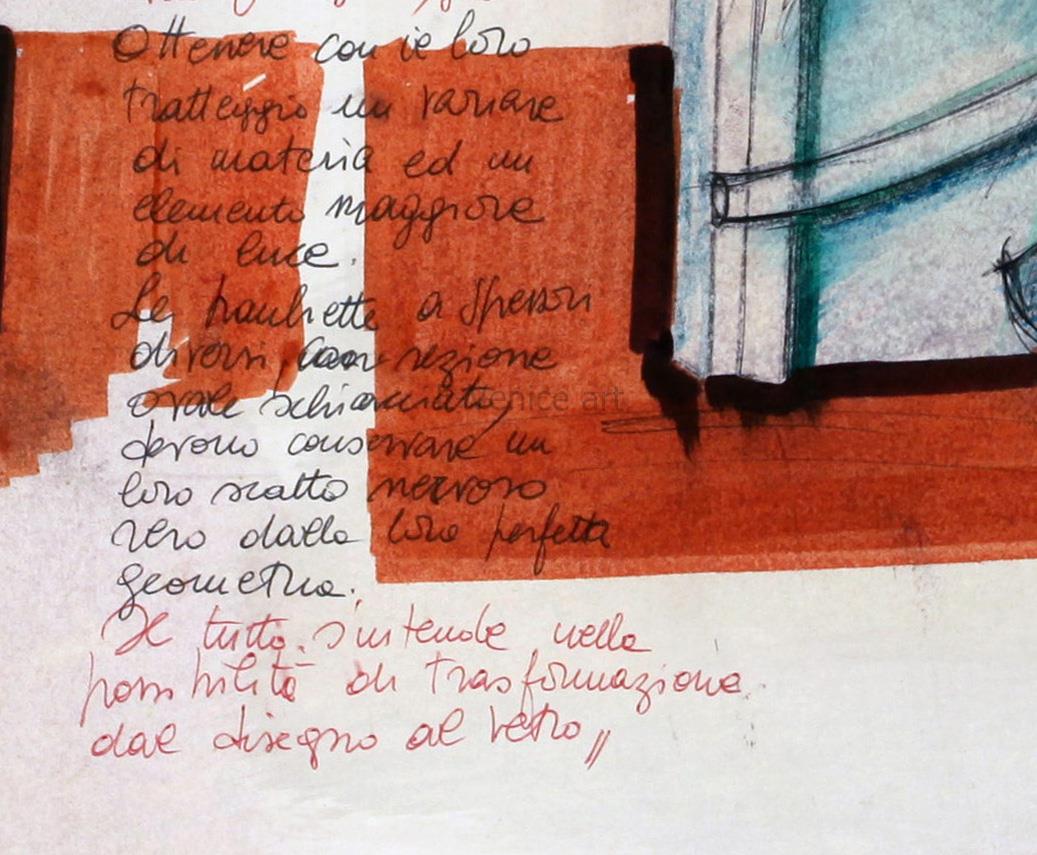 Ottenere con ie loro
tratteggio un variare
di materia ed un
elemento maggiore
di luce.
Le bacchette a spessori
diversi, con sezione
ovale schiacciata,
devono conservare un
loro scatto nervoso
reso dalla loro perfetta
geometria.
Il tutto s'intende nella
possibilità di trasformazione
dal disegno al vetro,,
enice art